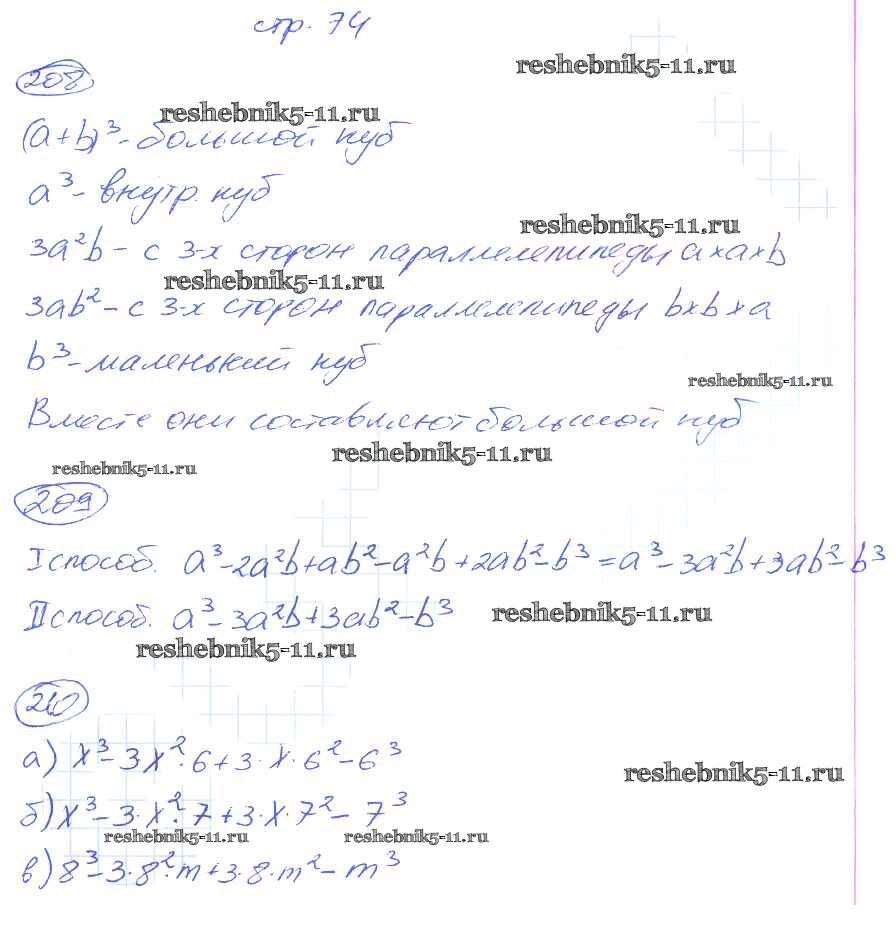 стр. 74
reshebnik5-11.ru
208
reshebnik5-11.ru
(a+b)³ - большой куб
a³ - внутр. куб
reshebnik5-11.ru
3a²b - с 3-х сторон параллелепипеды a×a×b
reshebnik5-11.ru
3ab² - с 3-х сторон параллелепипеды b×b×a
b³ - маленький куб
reshebnik5-11.ru
Вместе они составляют большой куб
reshebnik5-11.ru
reshebnik5-11.ru
209
I способ. a³-2a²b+ab²-a²b+2ab²-b³=a³-3a²b+3ab²-b³
II способ. a³-3a²b+3ab²-b³
reshebnik5-11.ru
reshebnik5-11.ru
210
а) x³-3x²·6+3·x·6²-6³
reshebnik5-11.ru
б) x³-3·x²·7+3·x·7²-7³
reshebnik5-11.ru reshebnik5-11.ru
в) 8³-3·8²·m+3·8·m²-m³